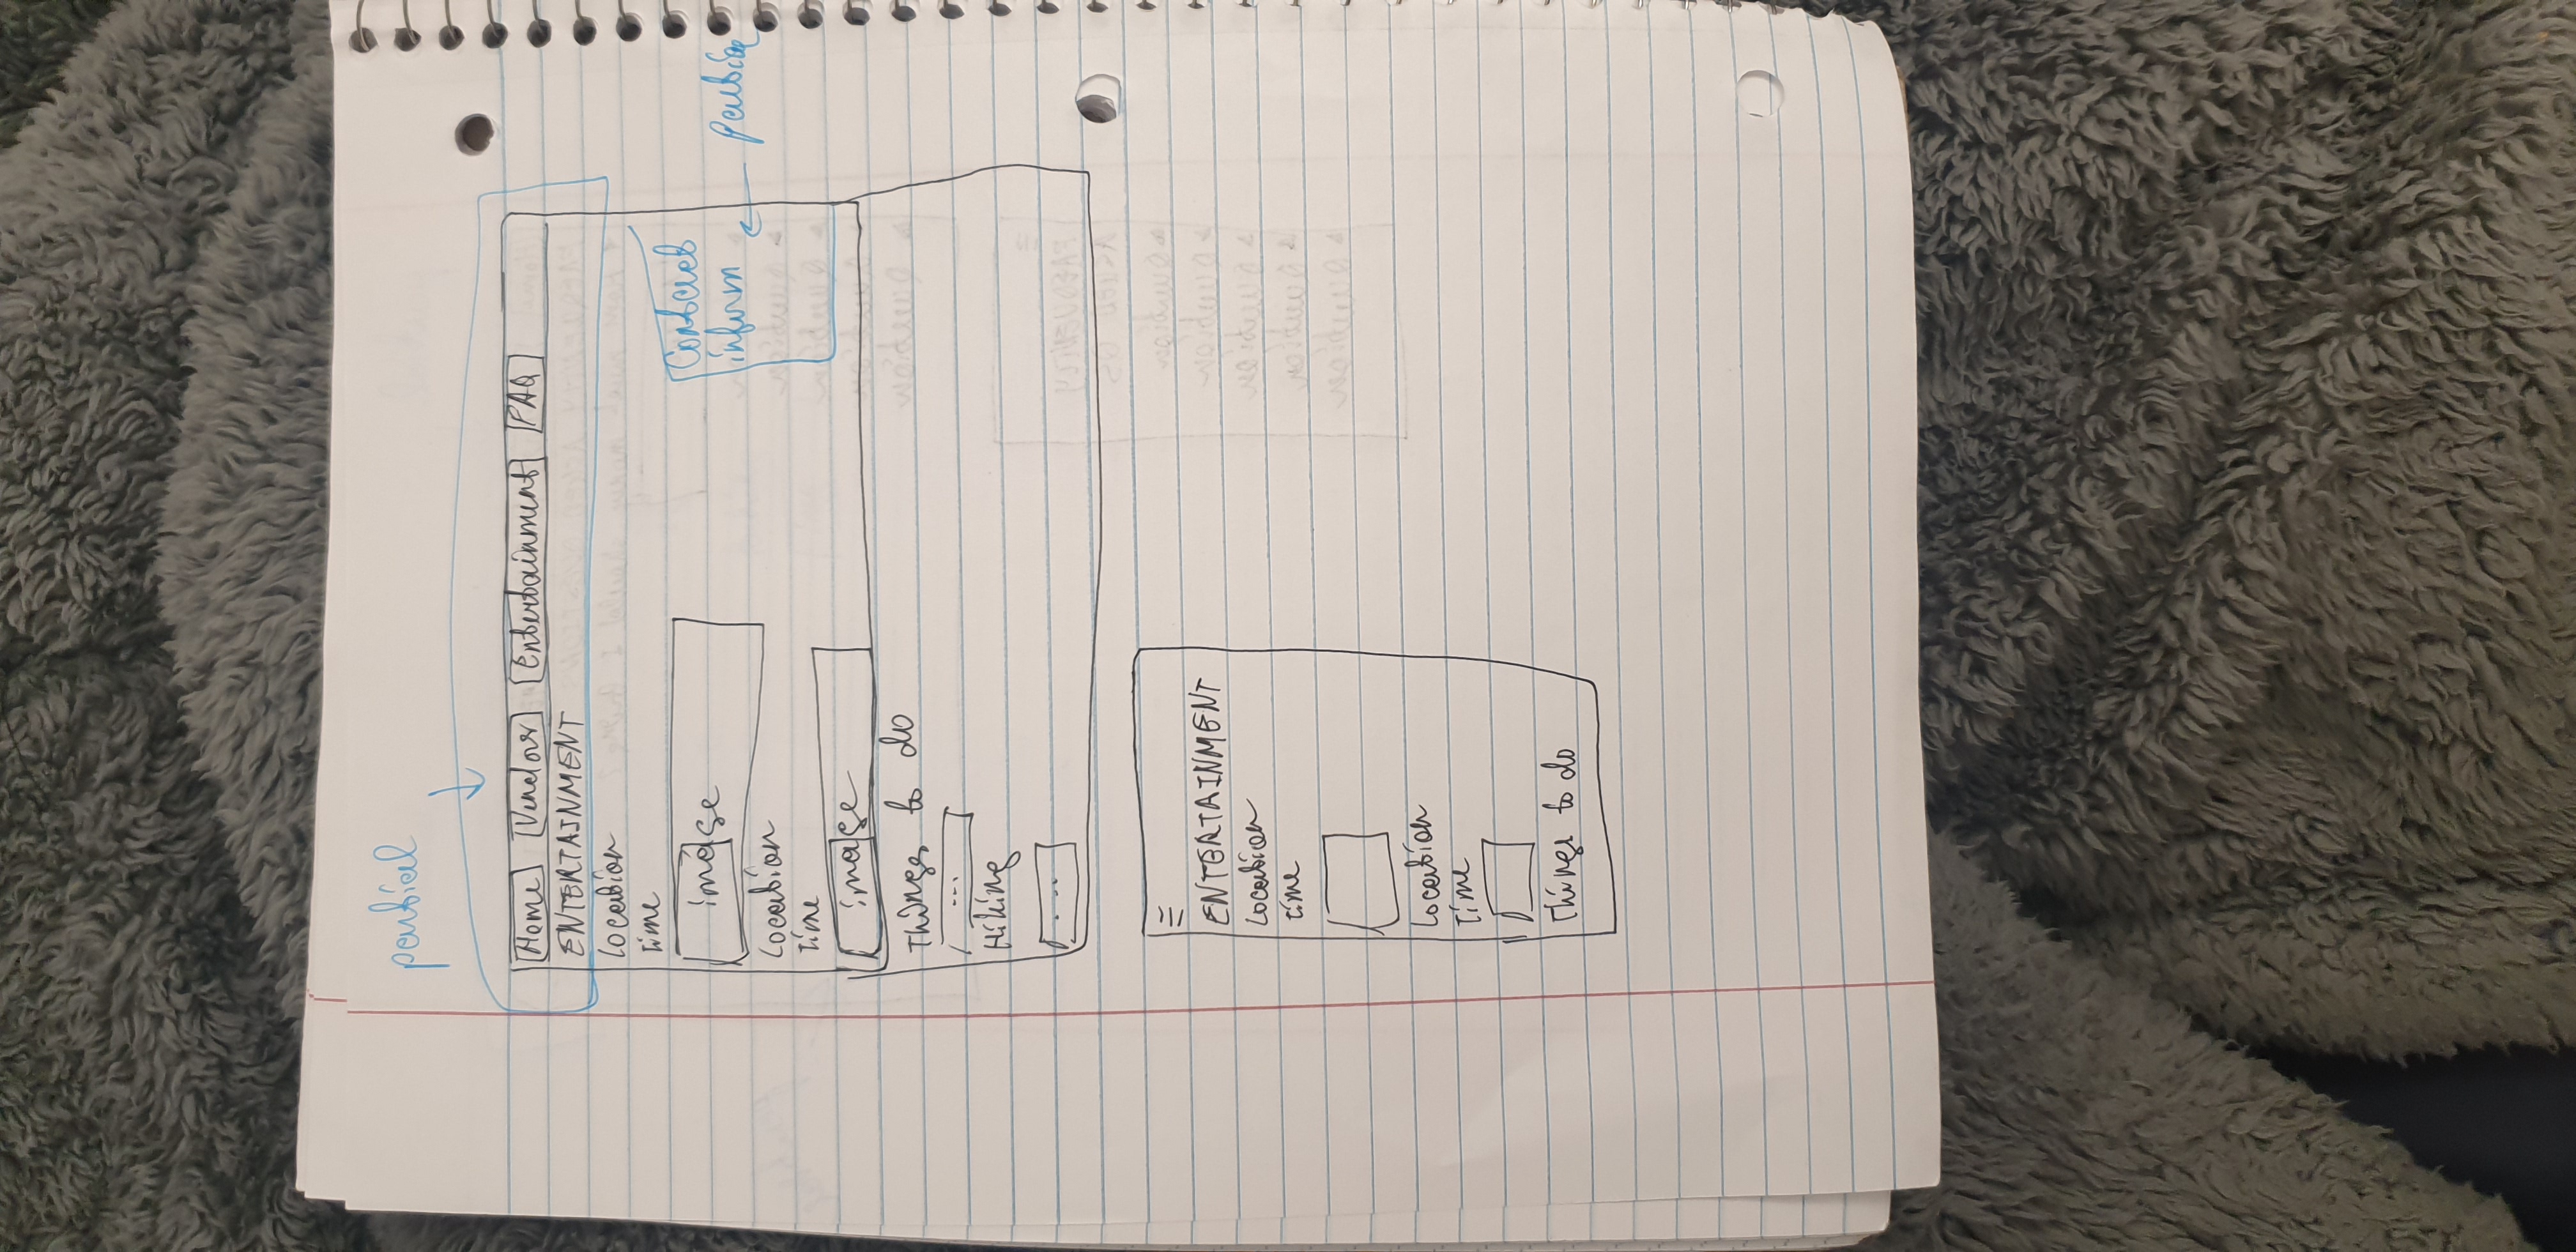 partial
Home Vendors Entertainment FAQ
ENTERTAINMENT
Location
Time
image
Contact
inform
partial
Location
Time
image
Things to do
...
Hiking
...
ENTERTAINMENT
Location
Time
Location
Time
Things to do